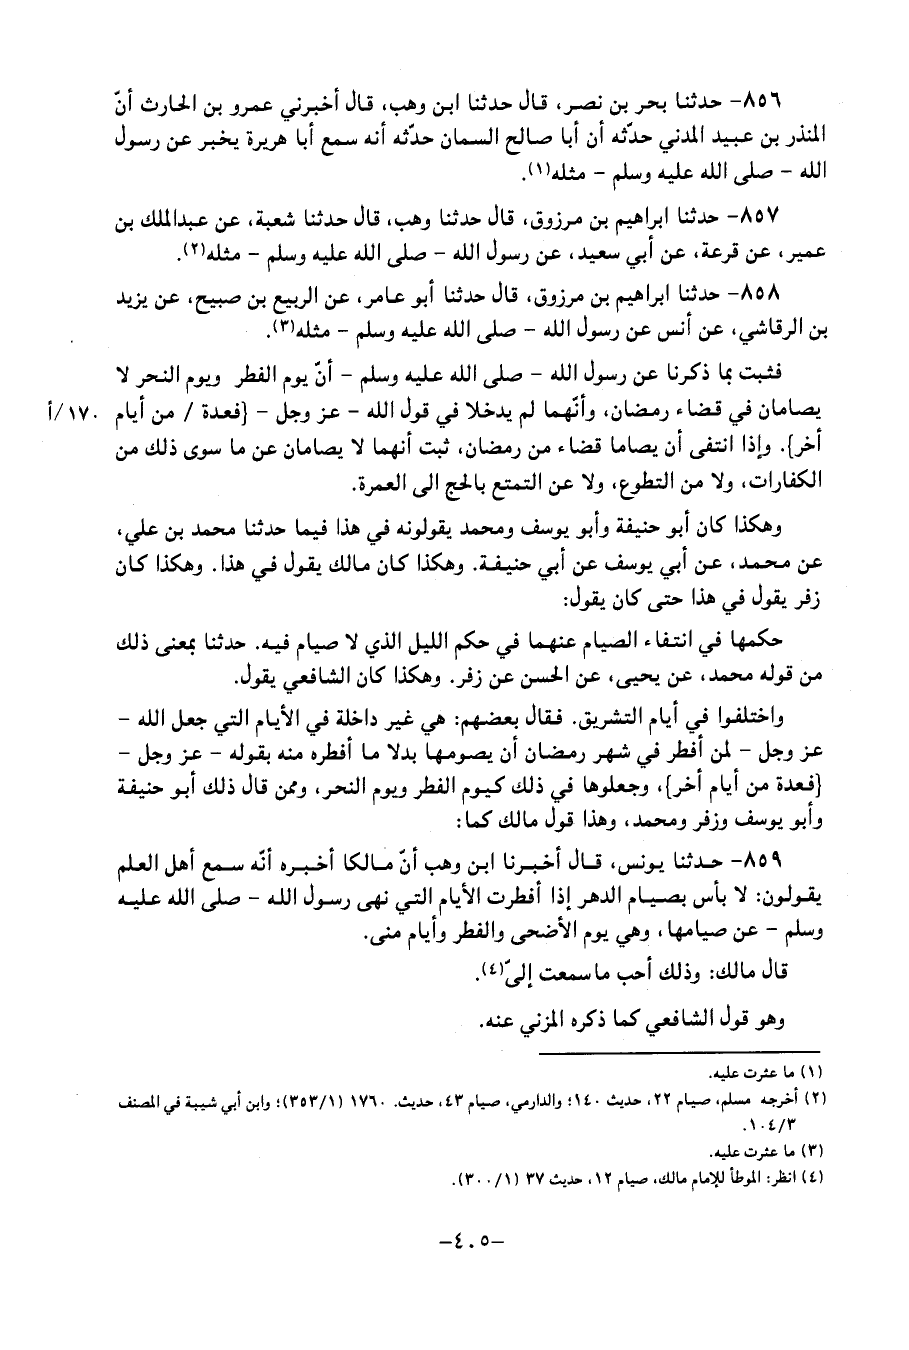 ٨٥٦- حدثنا بحر بن نصر، قال حدثنا ابن وهب، قال أخبرني عمرو بن الحارث أنّ
المنذر بن عبيد المدني حدّثه أن أبا صالح السمان حدّثه أنه سمع أبا هريرة يخبر عن رسول
الله - صلى الله عليه وسلم - مثله(١).
٨٥٧- حدثنا ابراهيم بن مرزوق، قال حدثنا وهب، قال حدثنا شعبة، عن عبدالملك بن
عمير، عن قرعة، عن أبي سعيد، عن رسول الله - صلى الله عليه وسلم - مثله(٢).
٨٥٨- حدثنا ابراهيم بن مرزوق، قال حدثنا أبو عامر، عن الربيع بن صبيح، عن يزيد
بن الرقاشي، عن أنس عن رسول الله - صلى الله عليه وسلم - مثله(٣).
فثبت بما ذكرنا عن رسول الله - صلى الله عليه وسلم - أنّ يوم الفطر ويوم النحر لا
يصامان في قضاء رمضان، وأنّهما لم يدخلا في قول الله - عز وجل - {فعدة / من أيام ١٧٠/أ
أخر}. وإذا انتفى أن يصاما قضاء من رمضان، ثبت أنهما لا يصامان عن ما سوى ذلك من
الكفارات، ولا من التطوع، ولا عن التمتع بالحج الى العمرة.
وهكذا كان أبو حنيفة وأبو يوسف ومحمد يقولونه في هذا فيما حدثنا محمد بن علي،
عن محمد، عن أبي يوسف عن أبي حنيفة. وهكذا كان مالك يقول في هذا. وهكذا كان
زفر يقول في هذا حتى كان يقول:
حكمها في انتفاء الصيام عنهما في حكم الليل الذي لا صيام فيه. حدثنا بمعنى ذلك
من قوله محمد، عن يحيى، عن الحسن عن زفر. وهكذا كان الشافعي يقول.
واختلفوا في أيام التشريق. فقال بعضهم: هي غير داخلة في الأيام التي جعل الله -
عز وجل - لمن أفطر في شهر رمضان أن يصومها بدلا ما أفطره منه بقوله - عز وجل -
{فعدة من أيام أخر}، وجعلوها في ذلك كيوم الفطر ويوم النحر، وممن قال ذلك أبو حنيفة
وأبو يوسف وزفر ومحمد، وهذا قول مالك كما:
٨٥٩- حدثنا يونس، قال أخبرنا ابن وهب أنّ مالكا أخبره أنّه سمع أهل العلم
يقولون: لا بأس بصيام الدهر إذا أفطرت الأيام التي نهى رسول الله - صلى الله عليه
وسلم - عن صيامها، وهي يوم الأضحى والفطر وأيام منى.
قال مالك: وذلك أحب ماسمعت إلىّ(٤).
وهو قول الشافعي كما ذكره المزني عنه.
(١) ما عثرت عليه.
(٢) أخرجه مسلم، صيام ٢٢، حديث ١٤٠؛ والدارمي، صيام ٤٣، حديث. ١٧٦٠ (٣٥٣/١)؛ وابن أبي شيبة في المصنف
١٠٤/٣.
(٣) ما عثرت عليه.
(٤) انظر: الموطأ للإمام مالك، صيام ١٢، حديث ٣٧ (٣٠٠/١).
-٤٠٥-